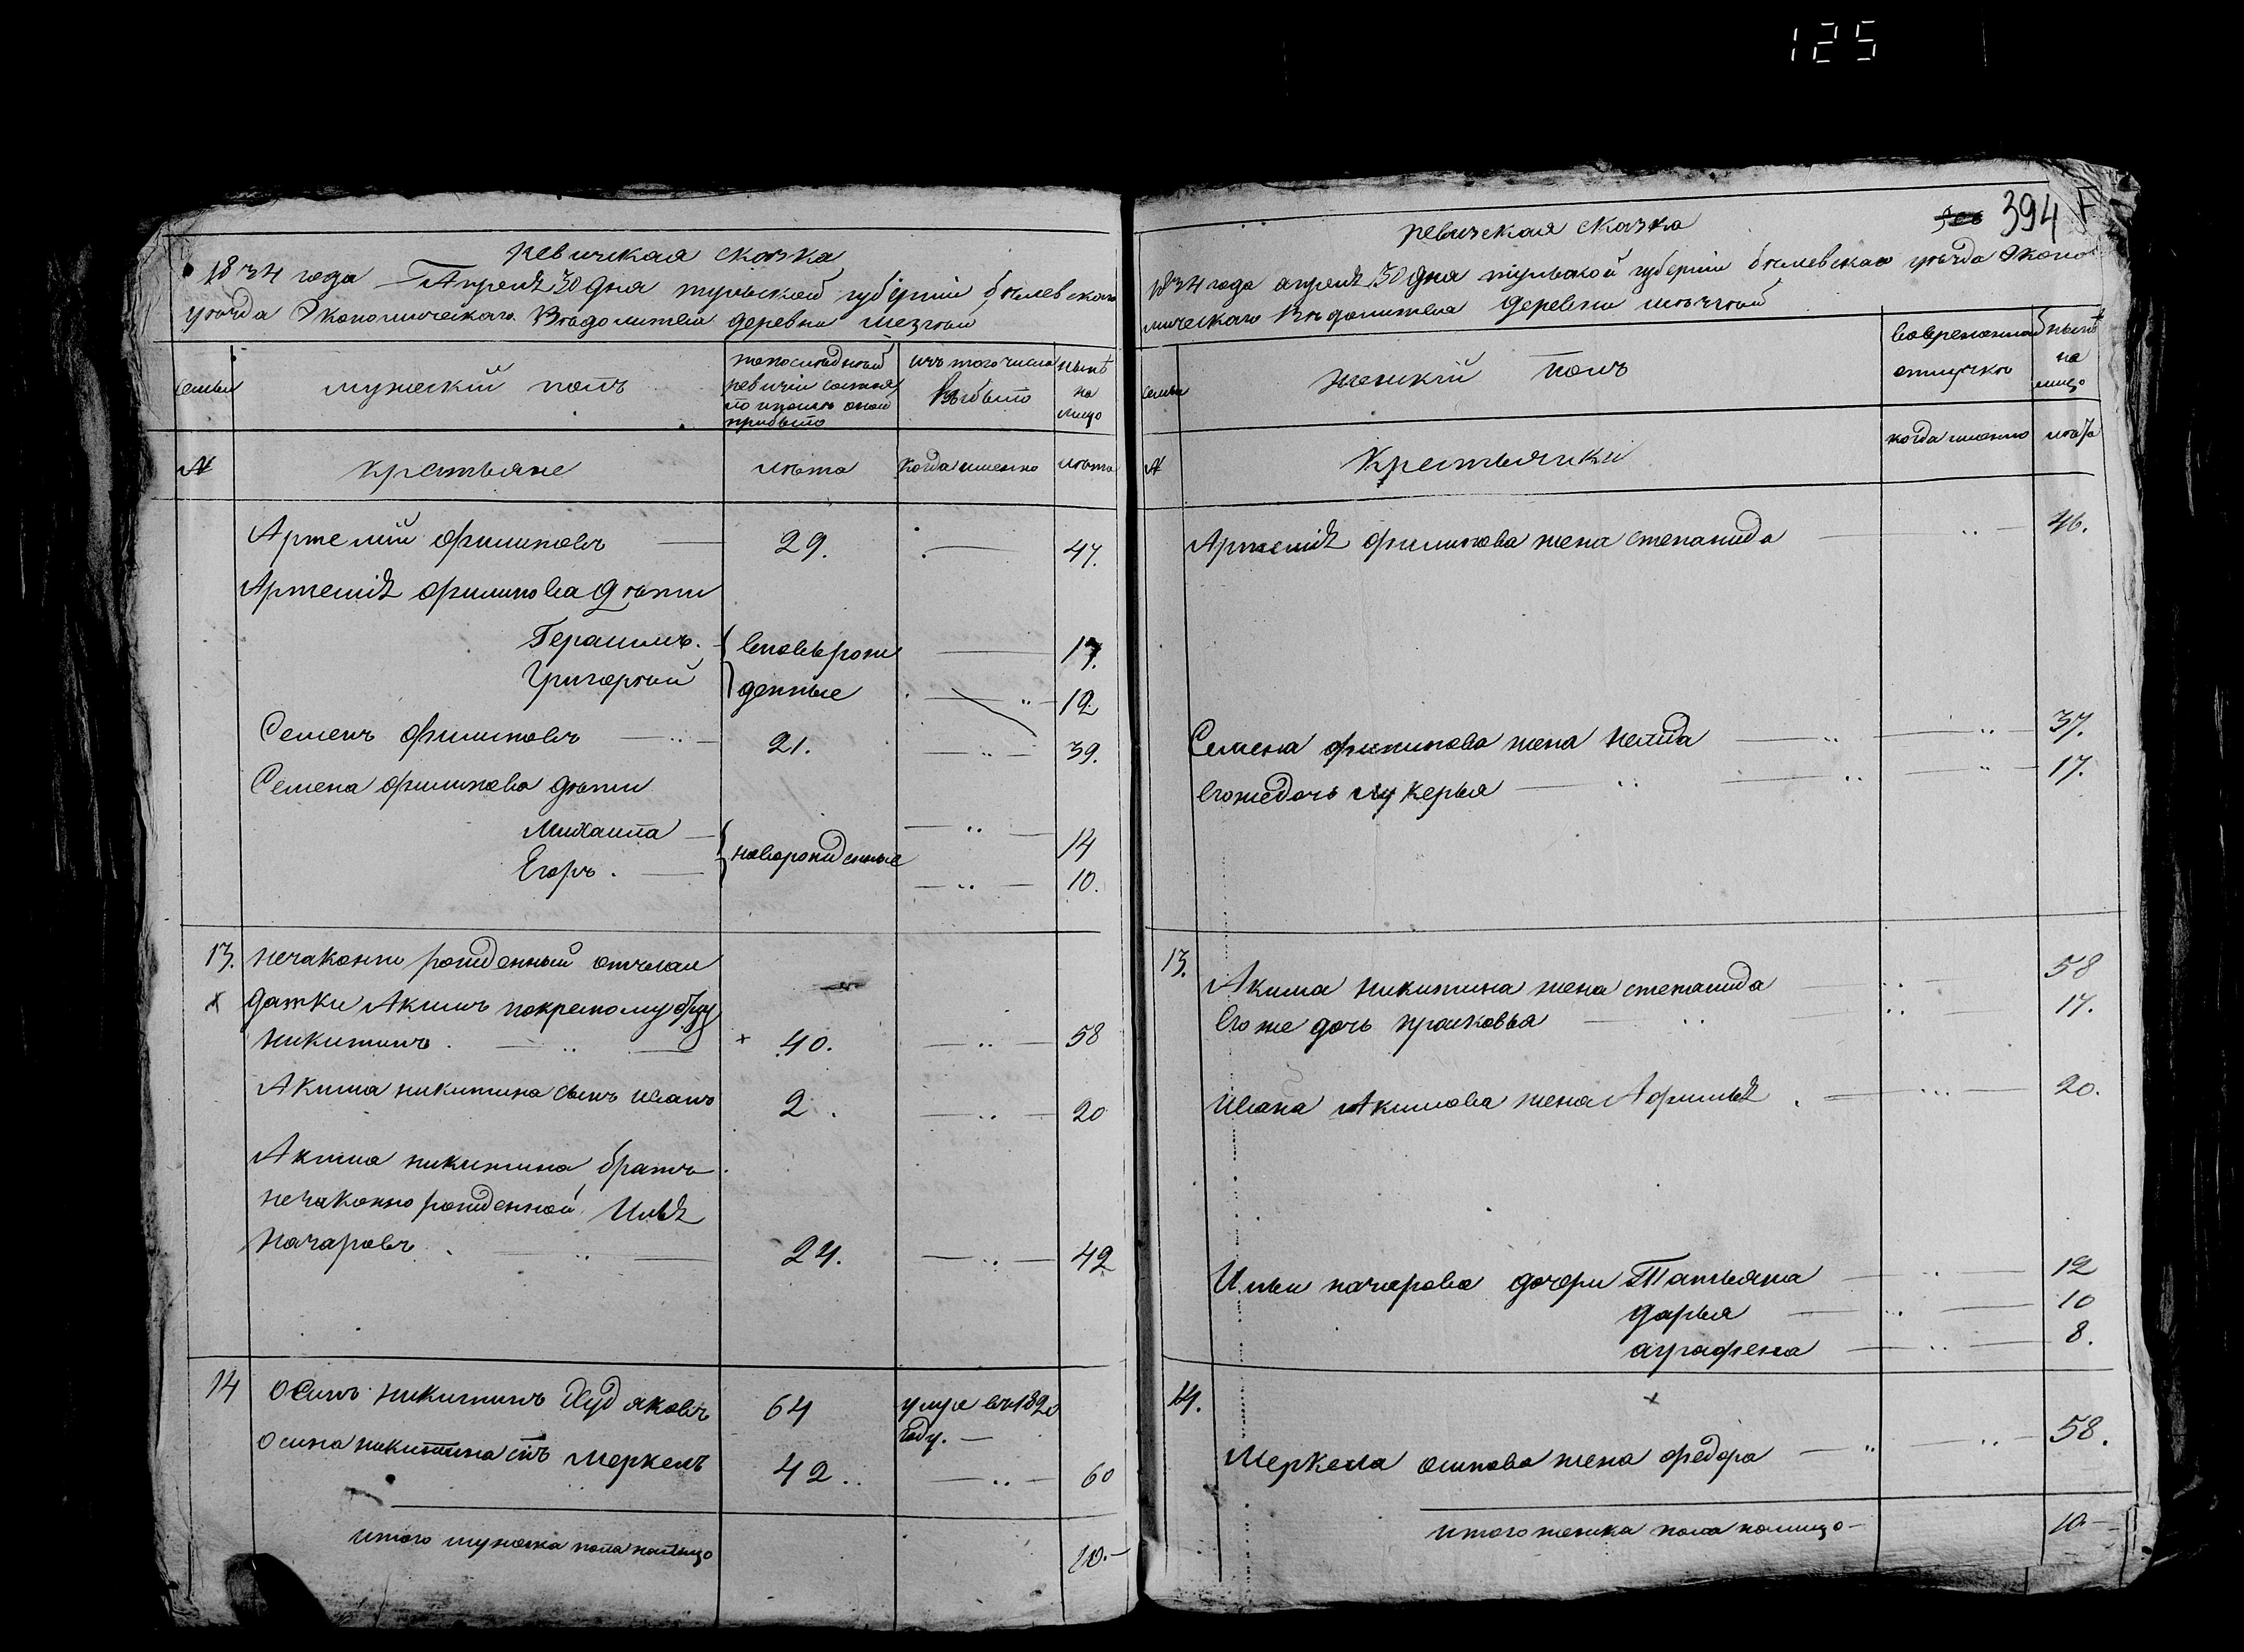 125
ревизская сказка
1834 года Апреля 30 дня тульской губернии белевскаго
уезда Экономическаго Ведомитева деревни
семьи
мужескiй полъ
ревизiи состоя
прибыло
изъ того числа
выбыло
ныне
на
лицо
№
крестьяне
лета
когда именно
лета
Артемiй филиповъ 29. 47.
Артемiя филипова дети
Герасимъ. вновьрож 17.
Григорей денные 12
Семенъ филиповъ 21. 39.
Семена филипова дети
Михаила 14
Егоръ. новорожденные 10.
13. незаконно рожденный отъ сол
х датки Акимъ покресному отцу
никитинъ. х 40. 58
Акима никитина сынъ иванъ 2. 20
Акима никитина братъ
незаконно рожденной Илья
назаровъ. 24. 42
14 Осипъ никитинъ Худяковъ 64 умре въ 1820
году.
Осипа никитина сiнъ Меркелъ 42.. 60
итого мужска пола налицо 10.
394
ревизская сказка
1834 года апреля 30 дня тульской губернiи белевскаго уезда Эконо
мическаго Ведомитева деревни
семьи
женскiй полъ
во временной
отлучке
ныне
на
лицо
№
Крестьянки
когда именно
лета
Артемiя филипова жена степанида 46.
Семена филипова жена 37.
Егоже дочь лукерья 17.
13.
Акима никитина жена степанида 58
Егоже дочь прасковья 17.
ивана Акимова жена Афимья. 20.
Ильи назарова дочери Татьяна 12
дарья 10
аграфена 8.
14. х
Меркела осипова жена федора 58.
итого женска пола налицо 10